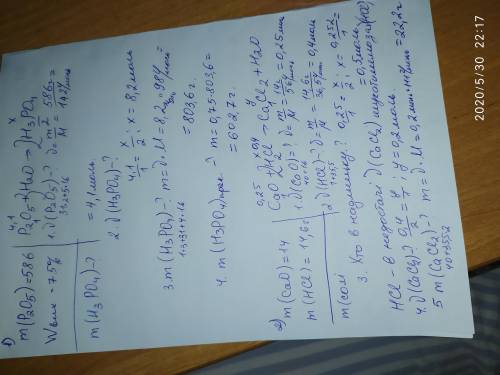 1)
m(P2O5)=586
Wвых = 75%
m(H3PO4)-?
4,1 x
P2O5+H2O → 2H3PO4
1 2
1. ν(P2O5)-? ν= m/M = 586г/142г/моль =
31·2+5·16
= 4,1 моль
2. ν(H3PO4)-? 4,1/1 = x/2; x = 8,2 моль
3. m(H3PO4)-? m=ν·M = 8,2моль·98г/моль =
1·3+31+4·16
= 803,6 г.
4. m(H3PO4)прак. -? m=0,75·803,6=
= 602,7 г.
2)
m(CaO)=14
m(HCl)= 14,6г
m(соли
0,25 x 0,4 y
CaO + 2HCl → CaCl2 + H2O
1. ν(CaO)-? ν= m/M = 14г/56г/моль = 0,25 моль
40+16
2. ν(HCl)-? ν= m/M = 14,6г/36,5г/моль = 0,4 моль
1+35,5
3. Кто в недостатке? 0,25/1 = x/2; x = 0,25·2/1 =
= 0,5 моль
HCl - в недостатке
4. ν(CaCl2)-? 0,4/2 = y/1; y = 0,2 моль.
5 m(CaCl2)-? m=ν·M = 0,2 моль·111г/моль = 22,2г
40+35,5·2
2020/5/30 22:17